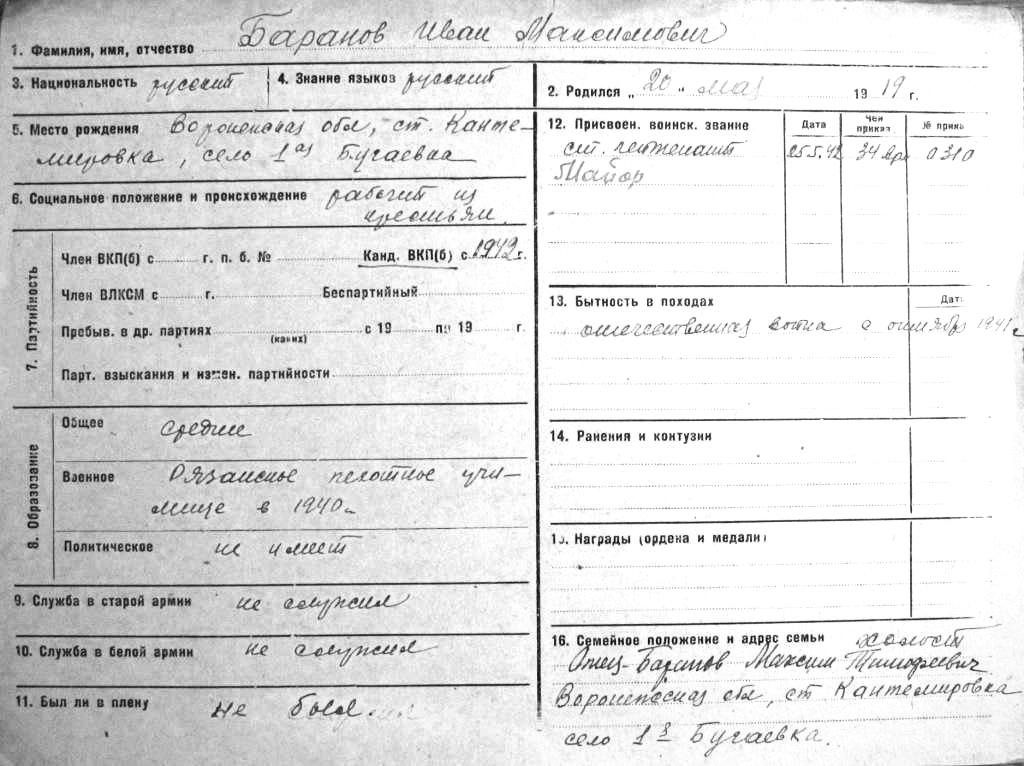 1. Фамилия, имя, отчество Баранов Иван Максимович
3. Национальность русский
4. Знание языков русский
5. Место рождения Воронежская обл, ст. Канте-
мировка, село 1ая Бугаевка
6. Социальное положение и происхождение рабочий из
крестьян
7. Партийность
Член ВКП(б) с г. п. б. № Канд. ВКП(б) с 1942 г.
Член ВЛКСМ с г. Беспартийный
Пребыв. в др. партиях с 19 по 19 г.
(каких)
Парт. взыскания и измен. партийности
8. Образование
Общее среднее
Военное Рязанское пехотное учи-
лище в 1940г
Политическое не имеет
9. Служба в старой армии не служил
10. Служба в белой армии не служил
11. Был ли в плену не был.
2. Родился „ 20 " мая 1919 г.
12. Присвоен. воинск. звание Дата Чей приказ № прика
ст. лейтенант 25.5.42 34 0310
Майор
13. Бытность в походах Дата
отечественная война с октября 1941г
14. Ранения и контузии
15. Награды (ордена и медали)
16. Семейное положение и адрес семьи холост
Отец-Баранов Максим Тимофеевич
Воронежская обл, ст Кантемировка
село 1я Бугаевка.